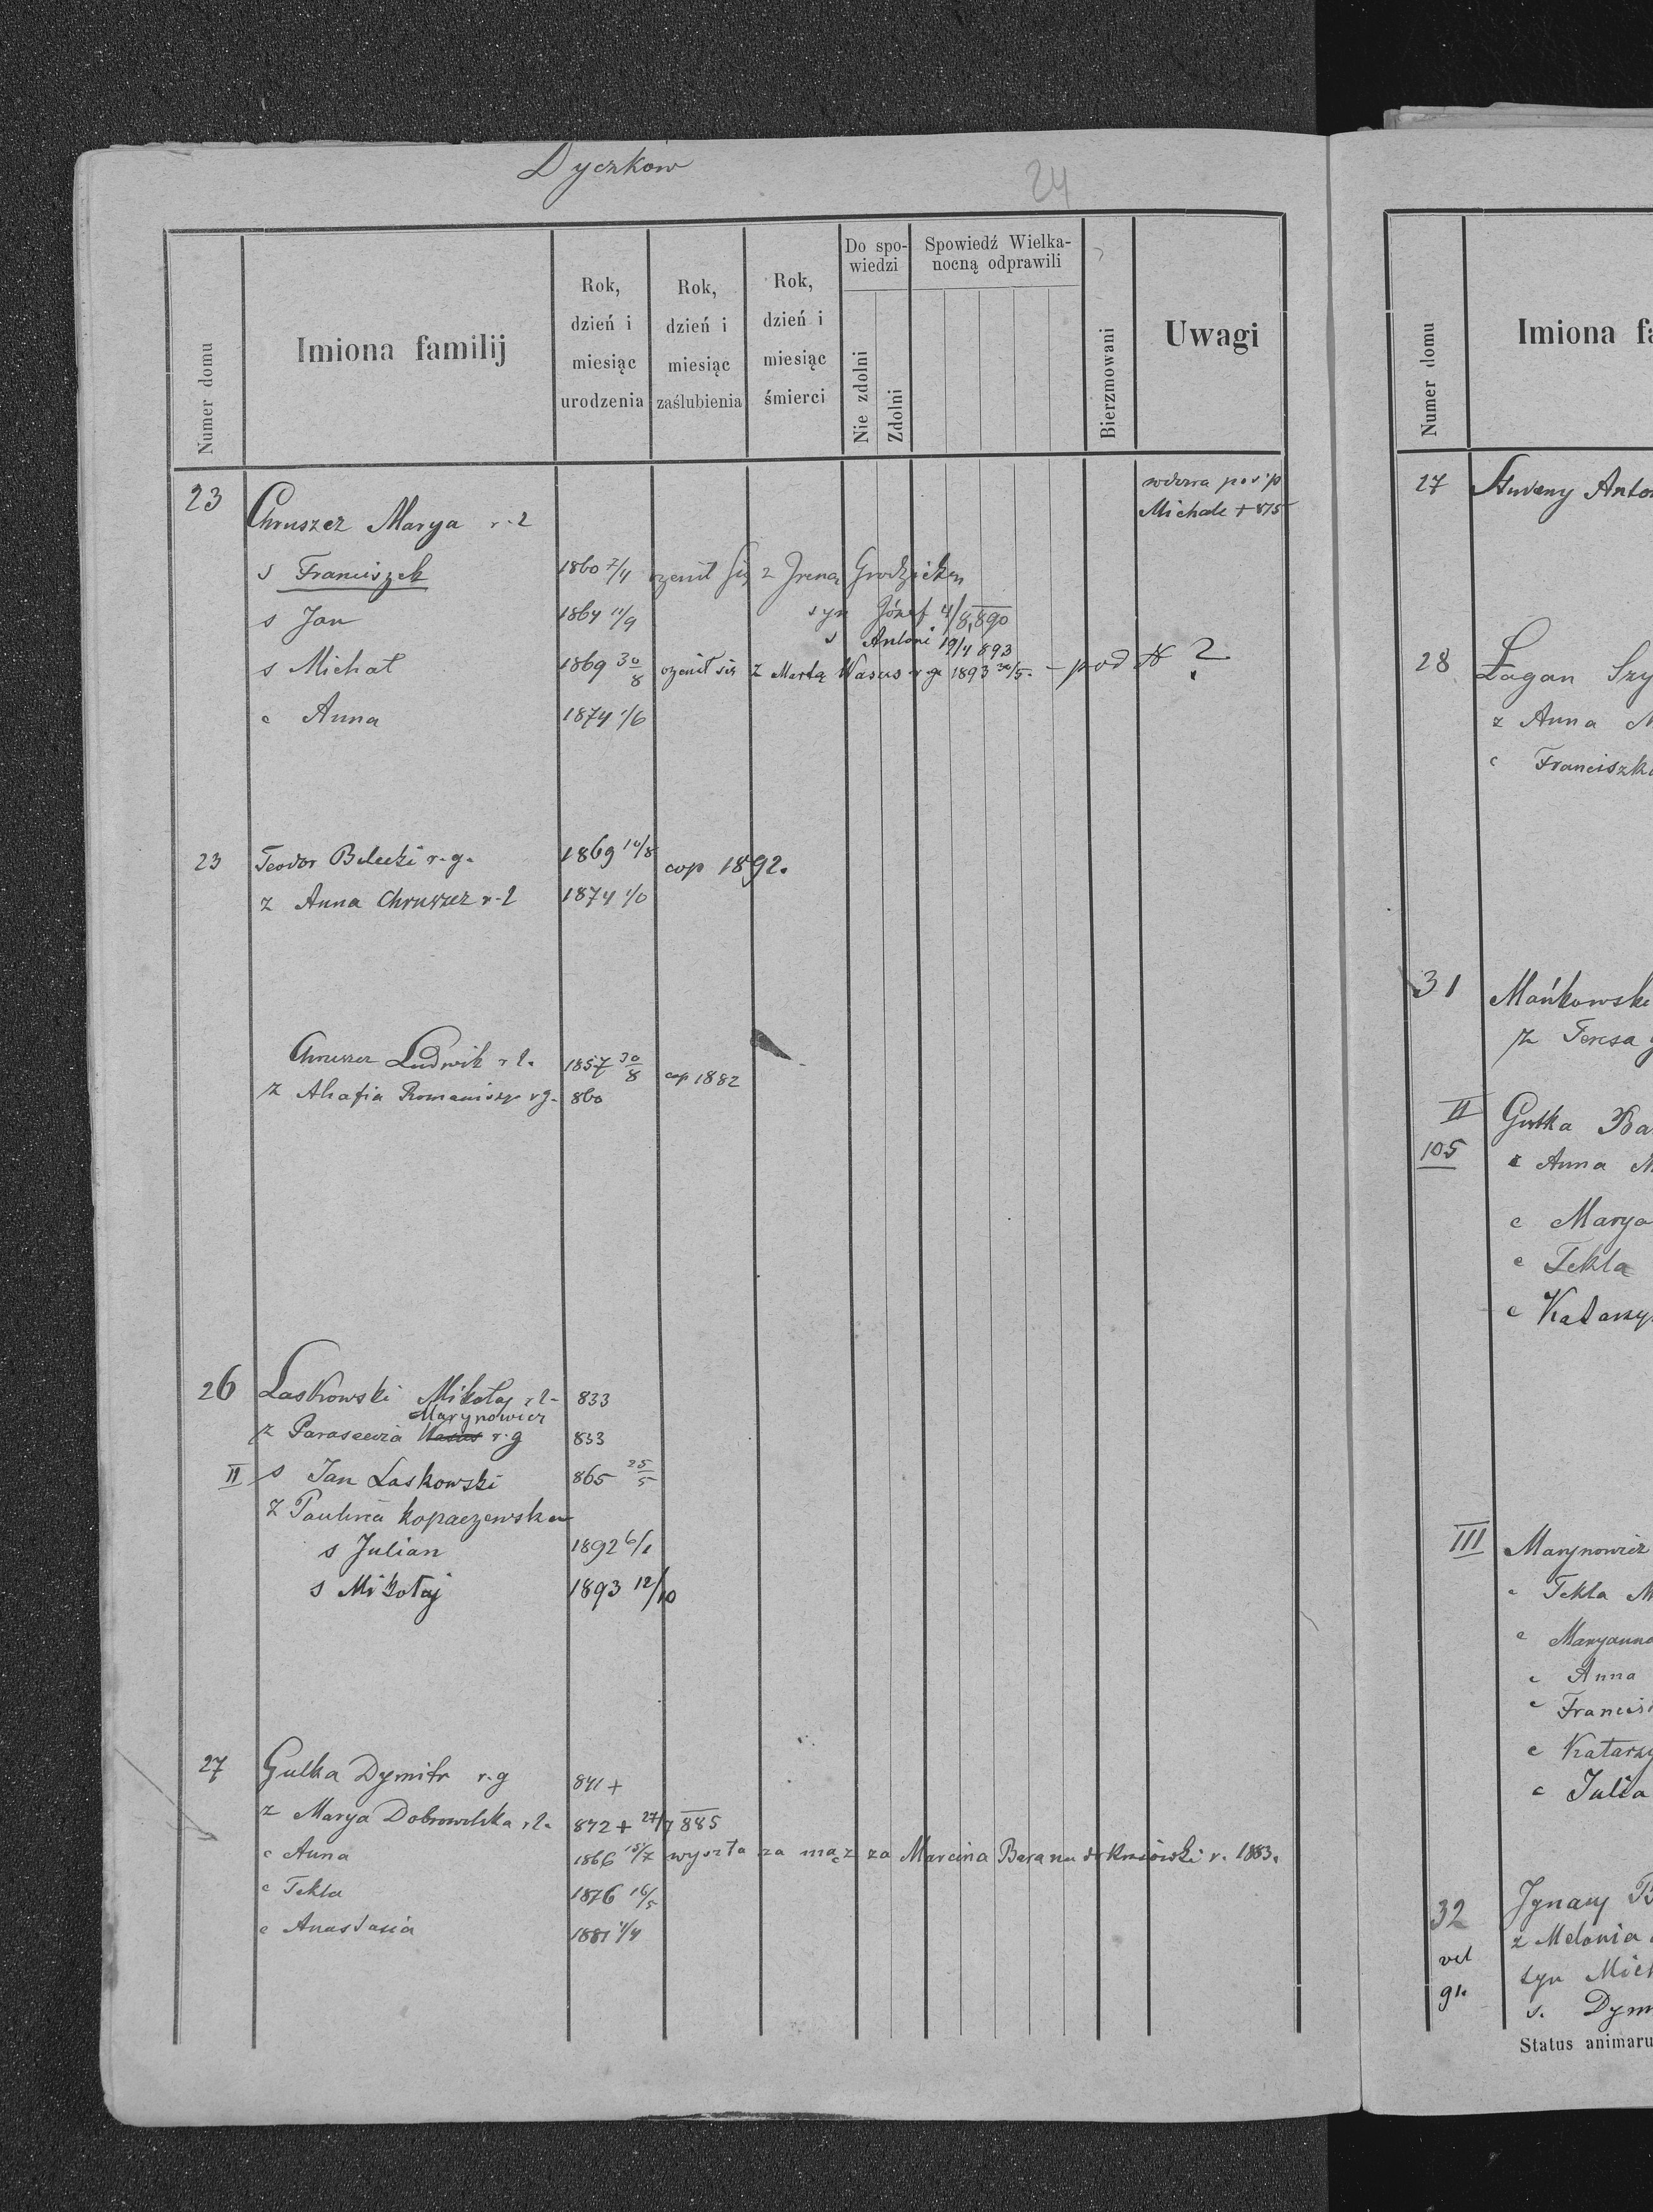 Dyczkow
24
Numer domu
Imiona familij
Rok, dzień i miesiąc urodzenia
Rok, dzień i miesiąc zaślubienia
Rok, dzień i miesiąc śmierci
Do spo-wiedzi
Nie zdolni
Zdolni
Spowiedź Wielka-nocną odprawili
Bierzmowani
Uwagi
23 Chruszcz Marya r. l wdowa po ś p
Michale + 875
s Franciszek 1860 7/4 ożenił się z Ireną Grodzicken
s Jan 1864 11/9 syn Józef 4/8, 890
s Antoni 19/4 893
s Michał 1869 30/8 ożenił się z Martą Wasus r. g. 1893 30/5. – pod N ?
c Anna 1874 1/6
23 Teodor Belecki r. g. 1869 10/8 cop 1892.
z Anna Chruszcz r. l 1874 1/6
Chruszcz Ludwik r l. 1857 30/8 cop 1882
z Ahafia r g. 860
26 Laskowski Mikołaj r l - 833
Marynowicz
z Parascewia Wasus r. g 833
II s Jan Laskowski 865 25/5
z Paulina Kopaczewska
s Julian 1892 6/1
s Mikołaj 1893 12/10
27 Gulka Dymitr r. g 841 +
z Marya Dobrowolska r l. 842 + 27/7 885
c Anna 1866 15/7 wyszła za mąż za Marcina Barana r. 1883.
c Tekla 1876 16/5
c Anastasia 1881 1/4
Numer domu
Imiona fa
27 Anto
28 Łagan Szy
z Anna M
c Franciszka
31 Mańkowski
z Teresa
II Gutka Ba
105 z Anna M
c Marya
c Tekla
c Katarzy
III Marynowicz
c Tekla M
c Maryanna
c Anna
c Francis
c Katarzy
c Julia
32 Ignacy B
z Melania
vel syn Mich
91. s. Dym
Status animaru